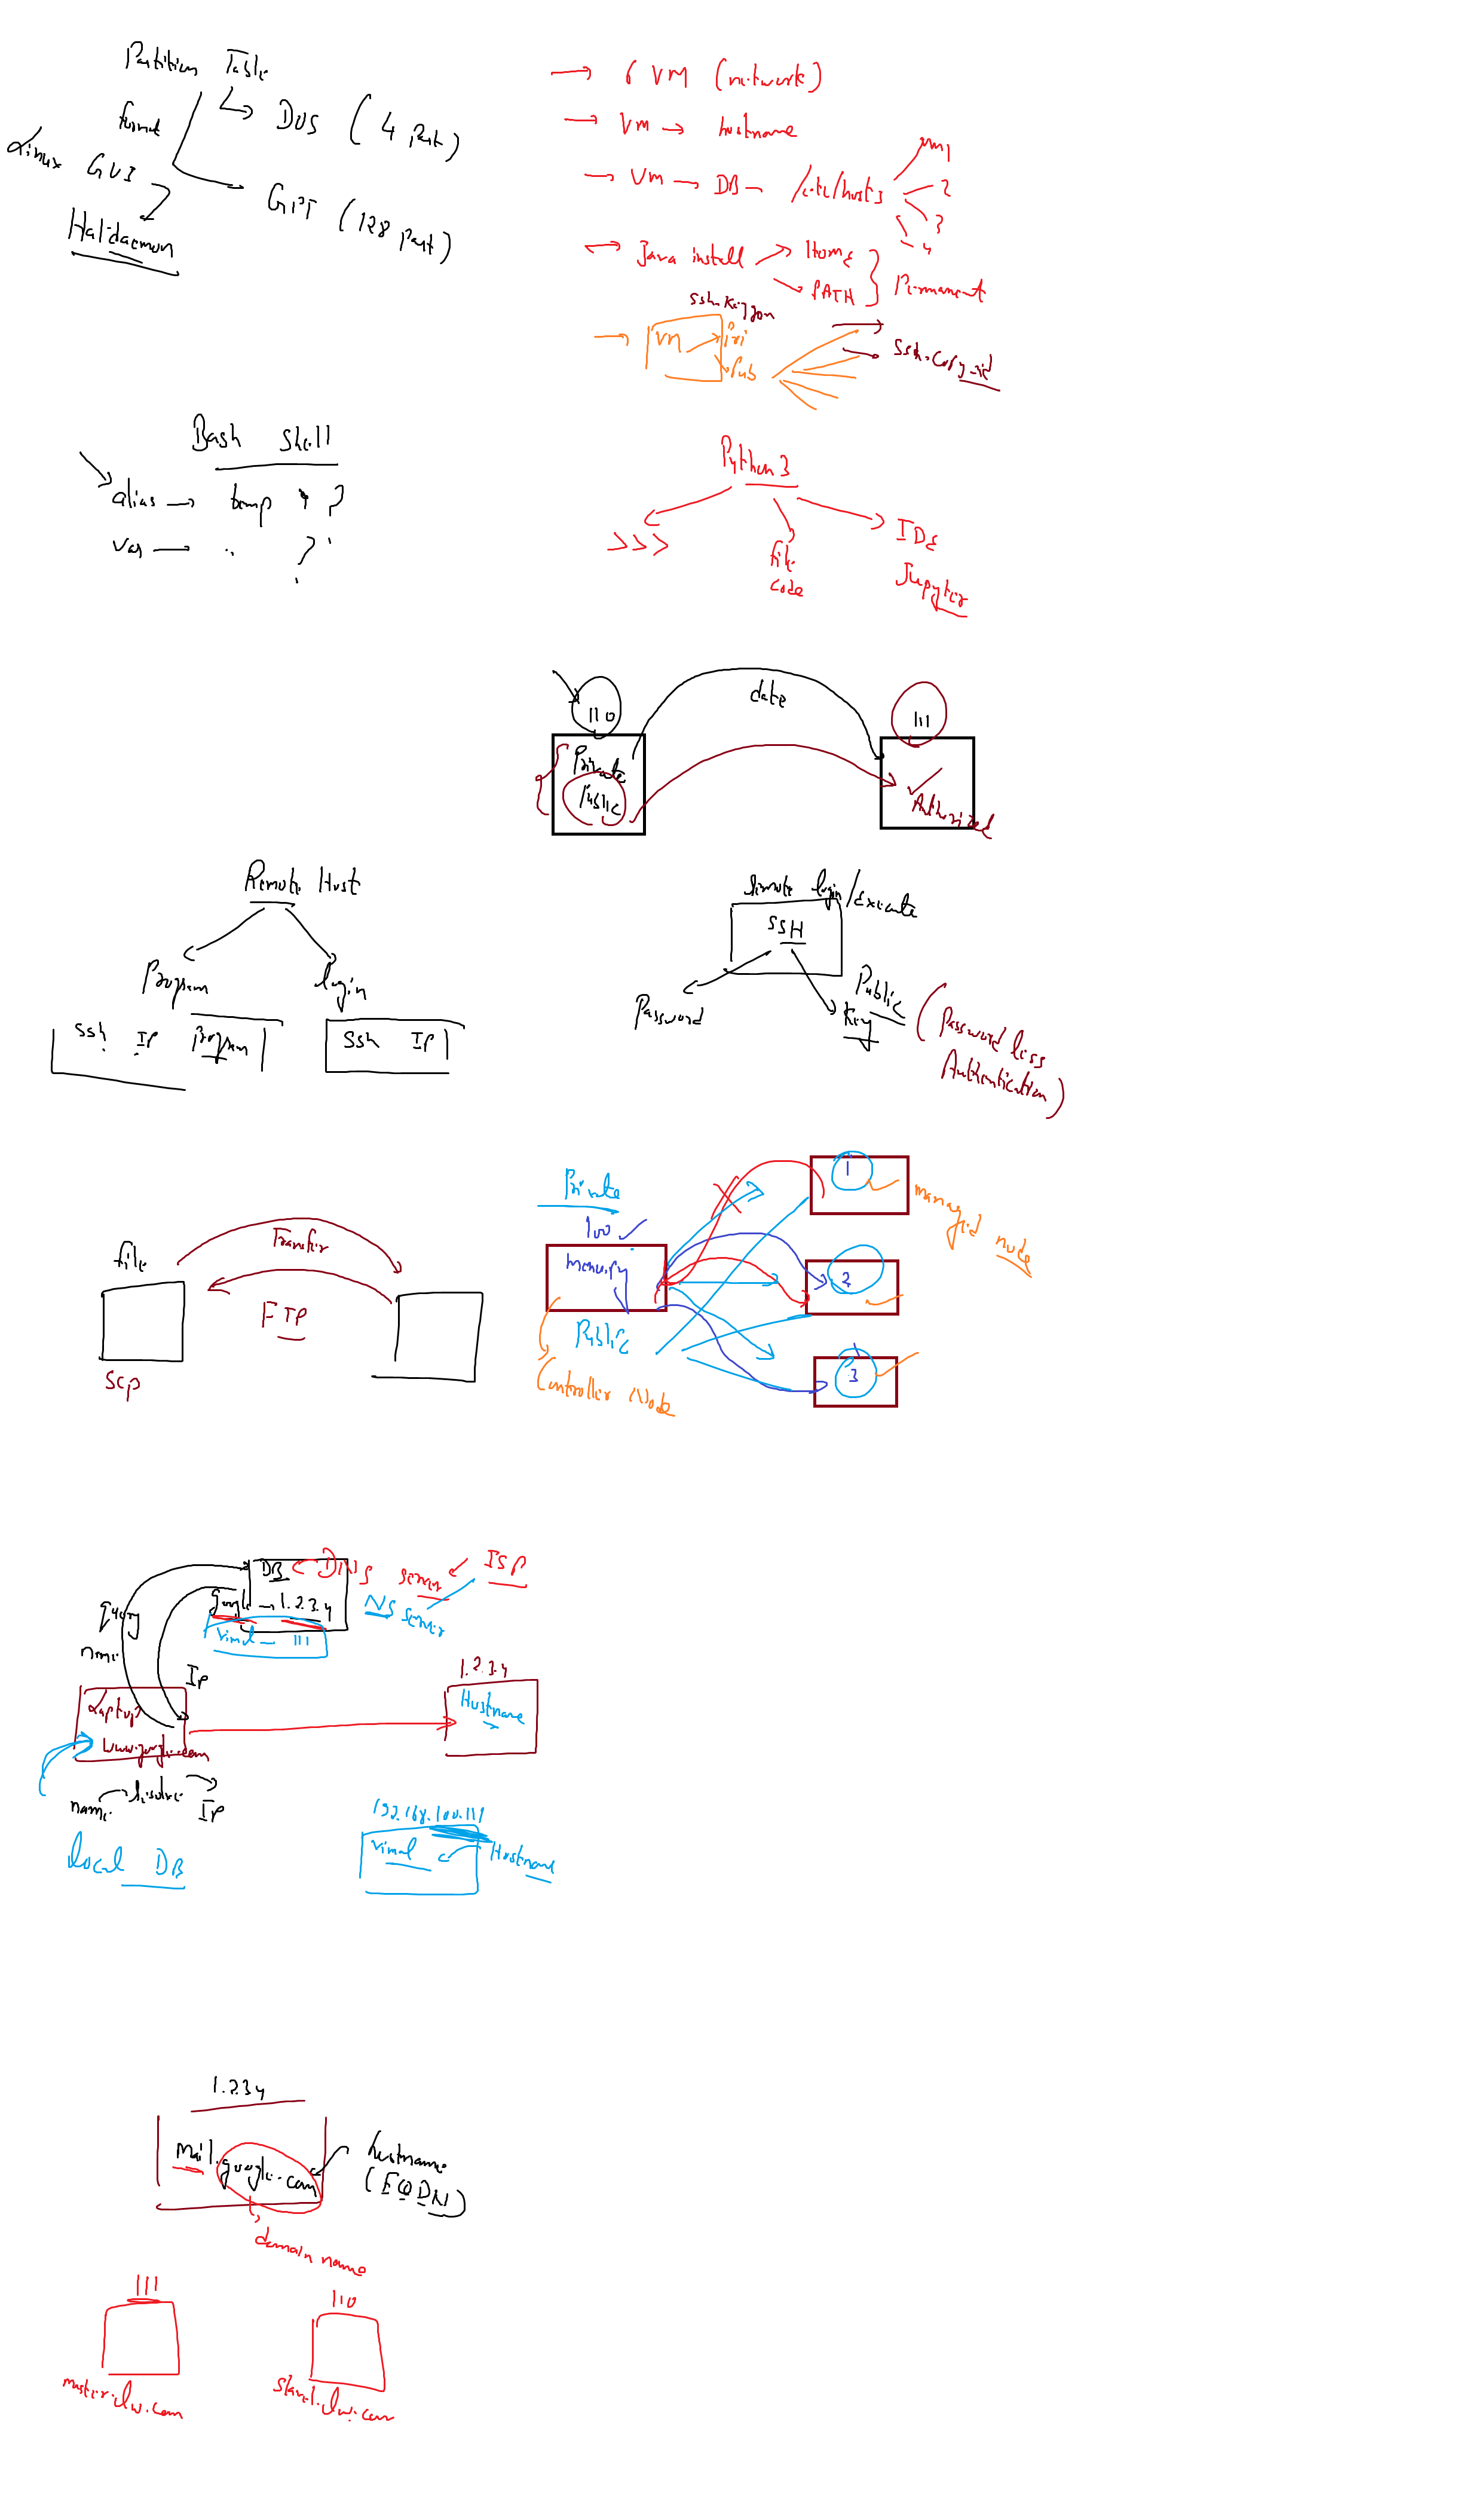 Partition Table
format
DOS (4 part)
Linux GUI
GPT (128 part)
Haldaemon
6 VM (network)
VM → hostname
VM → DB - /etc/hosts
vm1
2
3
4
Java install
Home
PATH
Permanent
ssh-keygen
VM
Pri
Pub
ssh-copy-id
Bash Shell
alias → temp ?
var → " ?
Python3
>>>
file
code
IDE
Jupyter
110
Private
Public
date
111
Authorized
Remote Host
Program
login
ssh IP program
ssh IP
Remote login/execute
SSH
Password
Public
Key
(Password less
Authentication)
file
Transfer
FTP
scp
Private
100
Public
Controller Node
1
2
3
managed node
DB
DNS server
ISP
google → 1.2.3.4
NS server
vimal - 111
query
name
IP
Laptop
www.google.com
name resolve IP
local DB
1.2.3.4
Hostname
192.168.100.111
vimal
Hostname
1.2.3.4
mail.google.com
hostname
(FQDN)
domain name
111
master.lw.com
110
slave1.lw.com